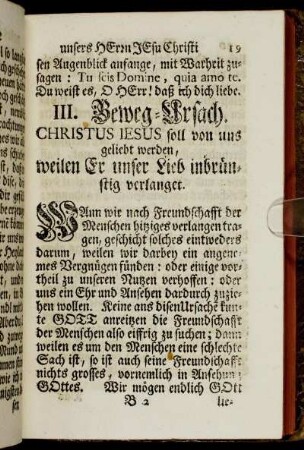 unsers HErrn JEsu Christi 19
sen Augenblick anfange, mit Warheit zu-
sagen : Tu scis Domine, quia amo te.
Du weist es, O HErr! daß ich dich liebe.
III. Beweg-Ursach.
CHRISTUS IESUS soll von uns
geliebt werden,
weilen Er unser Lieb inbrün-
stig verlanget.
WAnn wir nach Freundschafft der
Menschen hitziges verlangen tra-
gen, geschicht solches eintweders
darum, weilen wir darbey ein angene-
mes Vergnügen fünden : oder einige vor-
theil zu unseren Nutzen verhoffen : oder
uns ein Ehr und Ansehen dardurch zuzie-
hen wollen. Keine aus disen Ursache kun-
te GOTT anreitzen die Freundschafft
der Menschen also eiffrig zu suchen ; dann
weilen es um den Menschen eine schlechte
Sach ist, so ist auch seine Freundschafft
nichts grosses, vornemlich in Ansehung
GOttes. Wir mögen endlich GOtt
B 2 lie-